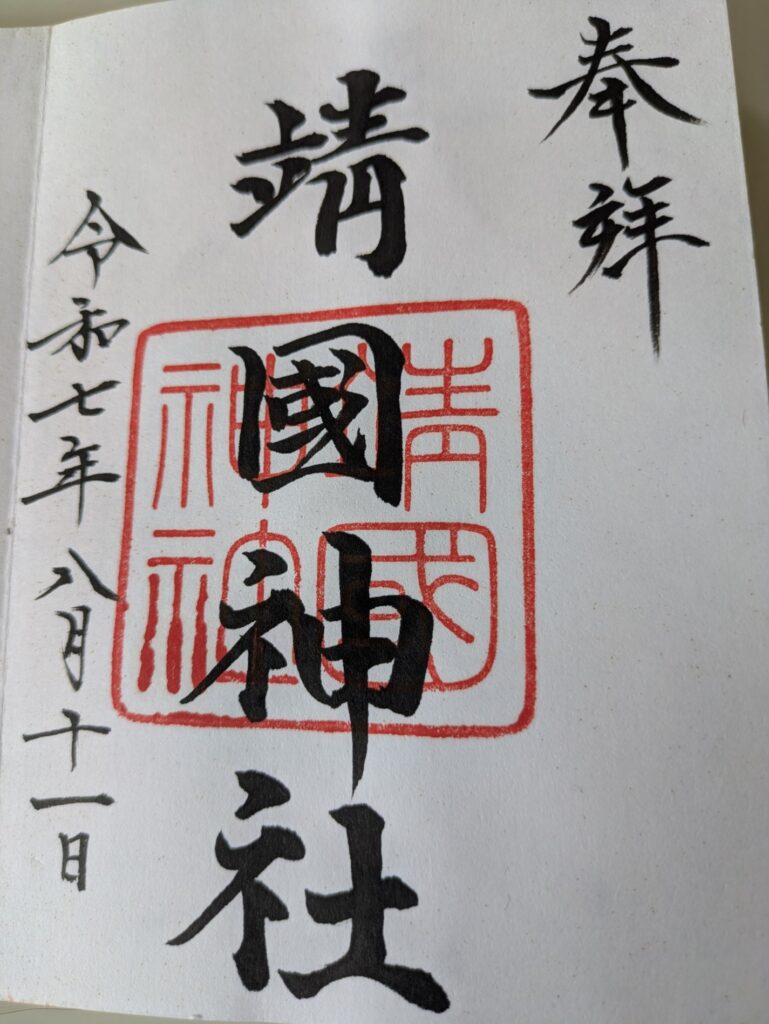 奉拝
靖國神社
靖國
神社
令和七年八月十一日